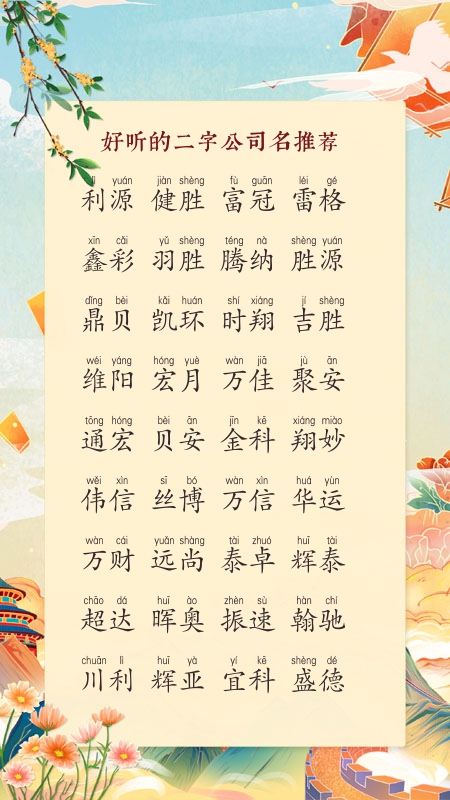 好听的二字公司名推荐
lì yuán jiàn shèng fù guān léi gé
利源 健胜 富冠 雷格
xīn cǎi yǔ shèng téng nà shèng yuán
鑫彩 羽胜 腾纳 胜源
dǐng bèi kǎi huán shí xiáng jí shèng
鼎贝 凯环 时翔 吉胜
wéi yáng hóng yuè wàn jiā jù ān
维阳 宏月 万佳 聚安
tōng hóng bèi ān jīn kē xiáng miào
通宏 贝安 金科 翔妙
wěi xìn sī bó wàn xìn huá yùn
伟信 丝博 万信 华运
wàn cái yuǎn shàng tài zhuó huī tài
万财 远尚 泰卓 辉泰
chāo dá huī ào zhèn sù hàn chí
超达 晖奥 振速 翰驰
chuān lì huī yà yí kē shèng dé
川利 辉亚 宜科 盛德